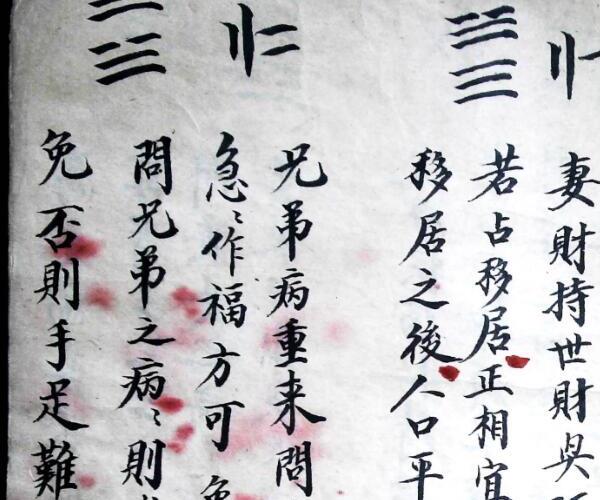 妻財持世財
若占移居正相宜
移居之後人口平
兄弟病重来問
急〻作福方可
問兄弟之病〻則
免否則手足難